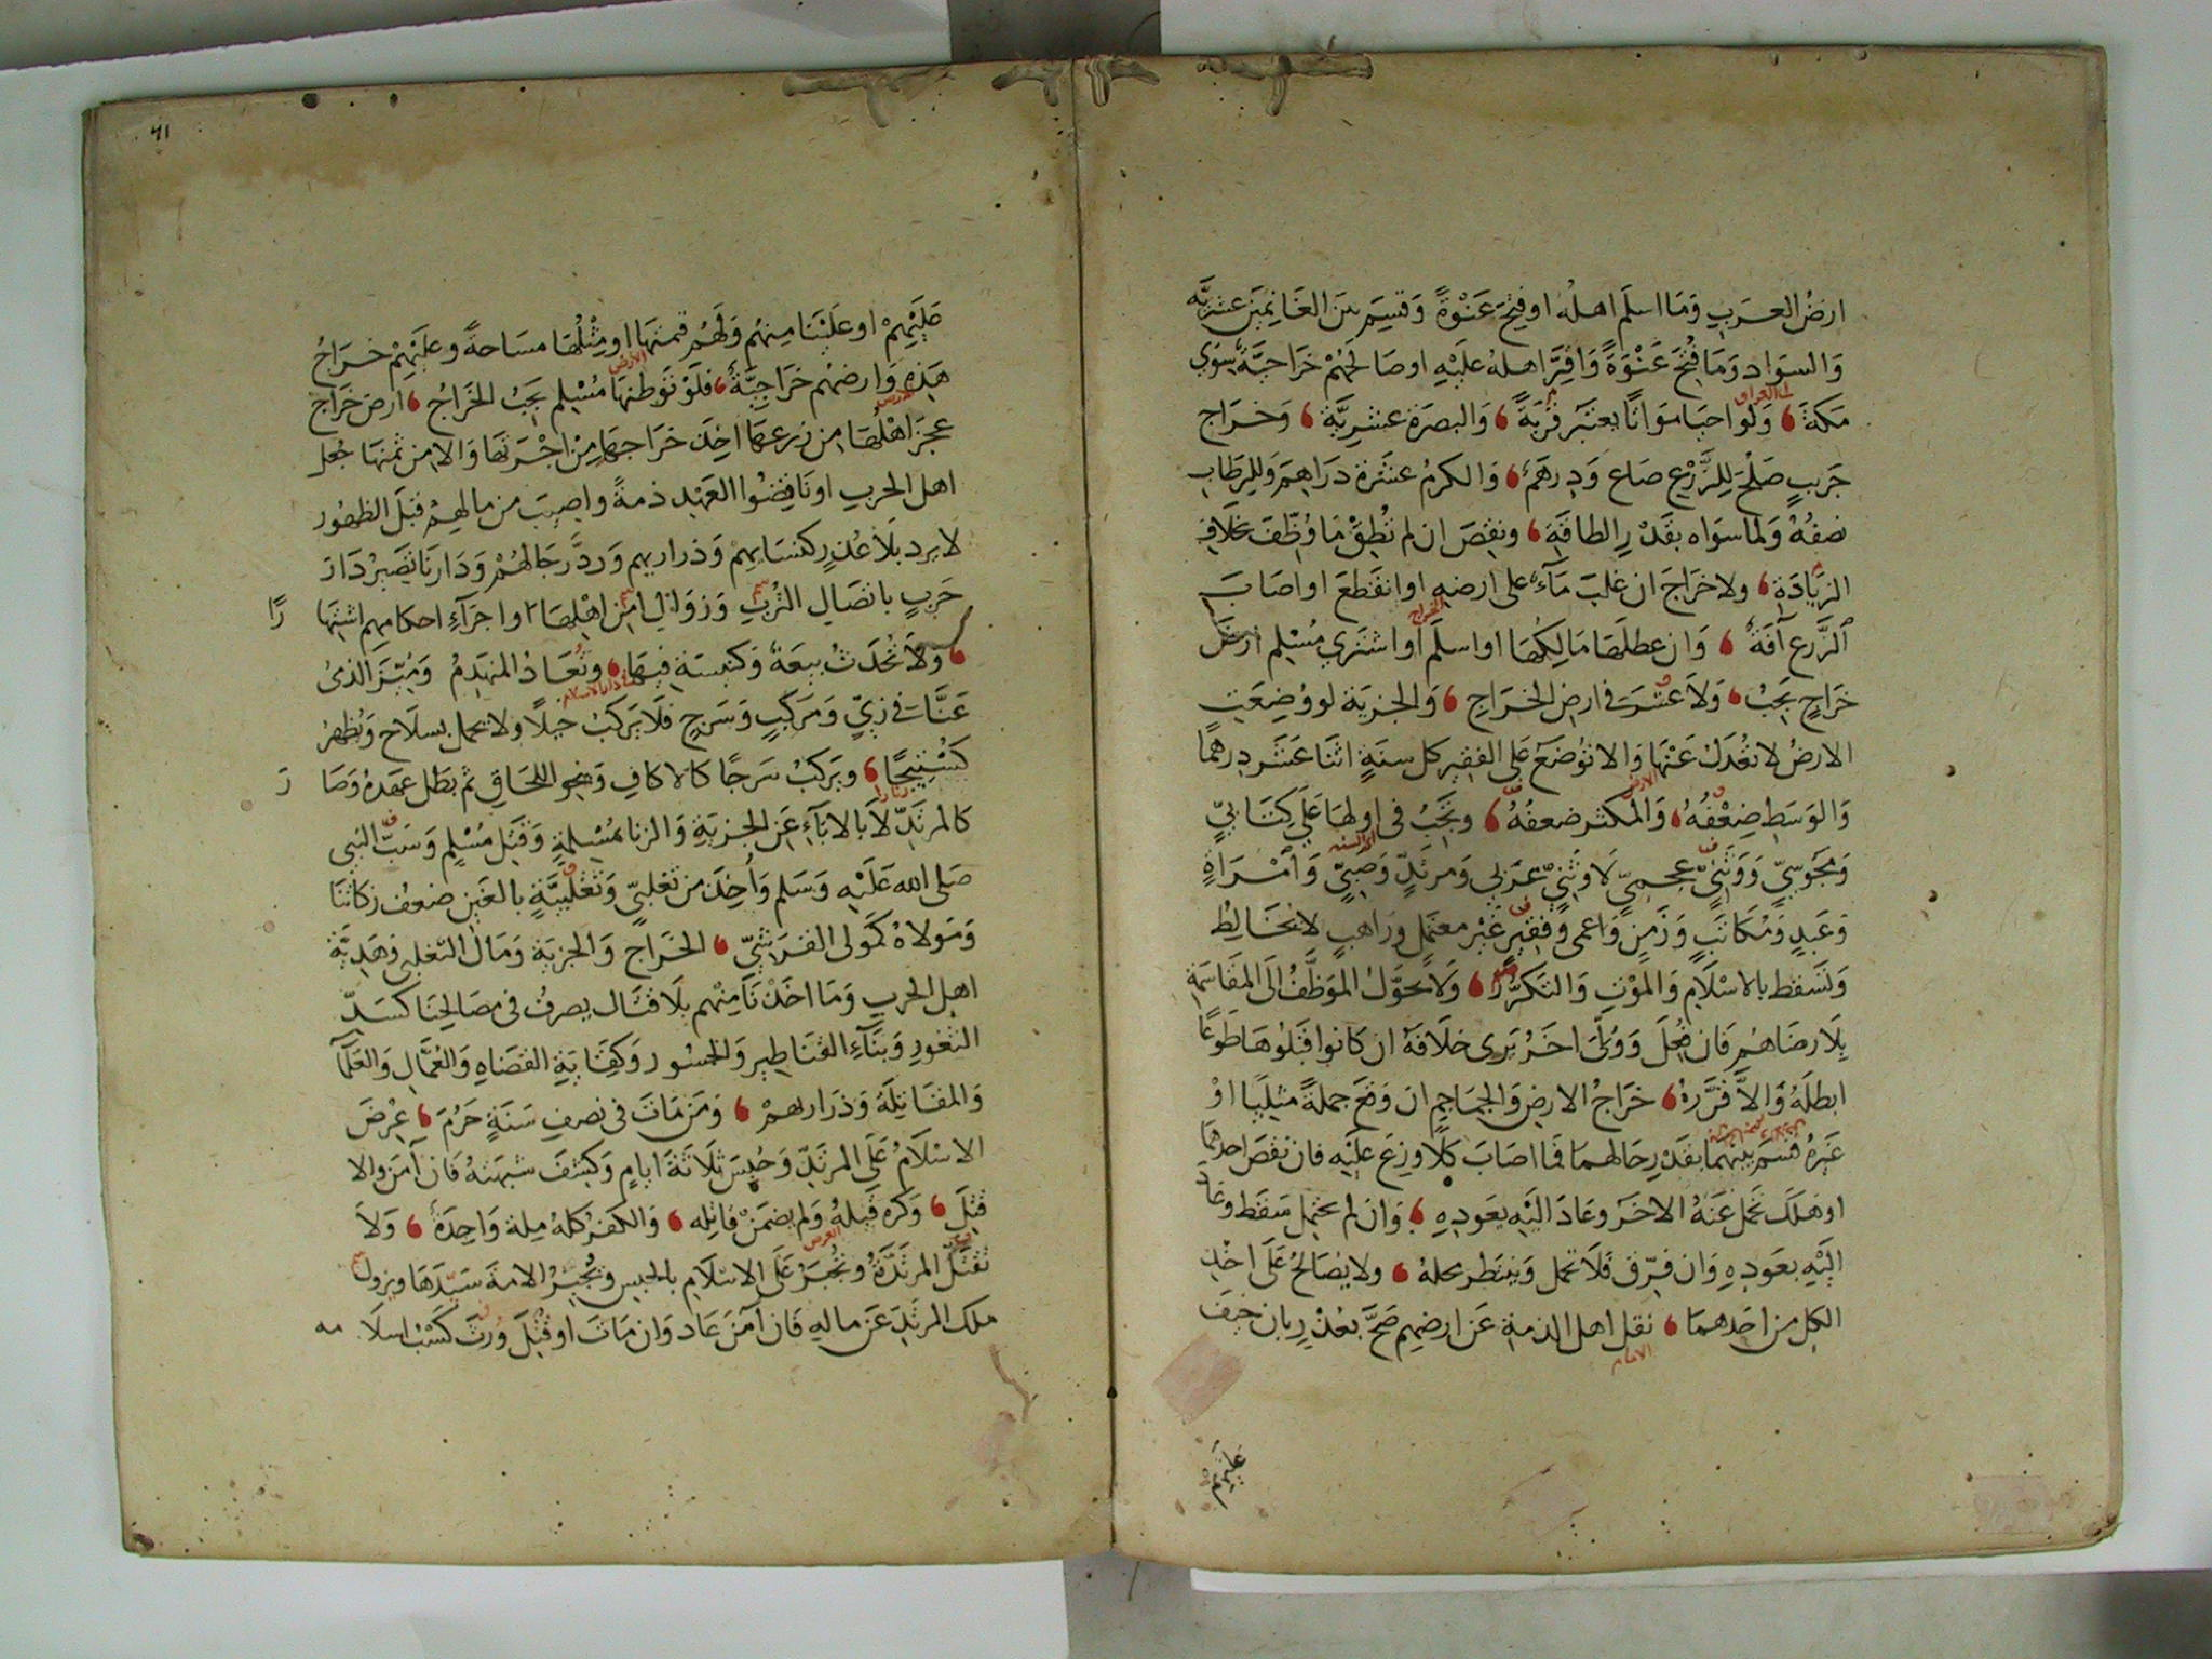 ارضُ العربِ وَمَا اسلَم اهلُه او فُتِحَ عَنْوَةً وَقُسِمَ بين الغَانِمِينَ عشريَّه
وَالسواد وَمَا فُتِحَ عَنْوَةً وَاقِرَّ اهله عليْهِ او صَالحَهُمْ خَرَاجيَّةٌ سِوَى
مَكةَ وَلو احيَا مَوَاتًا يعتبَر قُربَهُ وَالبصرَة عشريَّة وَخراج
جَرِيبٍ صَلُحَ لِلزَّرْعِ صَاع وَدِرهَم وَالكرمُ عشَرة دَرَاهِمَ وَلِلرِطَابِ
نصفُهُ وَلما سوَاه بقَدْرِ الطاقَةِ ونقِصَ ان لم تُطِقْ مَا وُظِّفَ بخلَافِ
الزيَادَةِ ولا خرَاجَ ان غلبَ مَآء على ارضهِ او انقَطعَ او اصَابَ
الزَّرع آفَةٌ وَان عطلهَا مَالِكُهَا او اسلَم او اشترى مُسْلم ارضَ
الخراج
خَرَاجٍ يَجبُ وَلاَ عُشْرَ فى ارضِ الخرَاجِ وَالجزيَة لو وُضِعَت
الارضُ لا تعُدَلُ عَنْهَا وَالا تُوضَعُ عَلى الفقِير كل سنَةٍ اثنَا عَشَر درهمًا
وَالوَسَطِ ضِعْفُهُ وَالمكثر ضعفُهُ وتجَبُ فى اولهَا عَلى كِتَابىٍّ
وَمَجُوسىٍّ وَوَثَنىٍّ عجمىٍّ لَا وثَنىٍّ عرَبى وَمرتَدٍّ وَصَبىٍّ وَامْرَاةٍ
وَعَبدٍ وَمُكاتَبٍ وَزَمِنٍ وَاعمى وَفقِيرٍ غَيْر معتمل وَرَاهبٍ لا يخَالِطُ
وَتَسقط بالاسْلَامِ وَالمَوْتِ وَالتكرّر وَلا يحوَّلُ المُوَظَّفُ الَى المقَاسَمَةِ
بِلَا رضَاهُم فَان فُعِلَ وَوُلّىَ اخرُ يَرى خلَافَهُ ان كَانوا قبَلوهَا طَوعًا
ابطلَهُ وَالاَّ قرَّرهُ خرَاجُ الارضِ وَالجمَاجِم ان وَضَعَ جملةً مثلَيَا اوْ
غَيرهُ قسَم بينهمَا بقَدْرِ حَالهما فَما اصَابَ كلًا وزِعَ علَيْه فان نقَصَ احدهمَا
او هَلَك تحمّل عَنْهُ الاخر وعَادَ اليْهِ بعَودِهِ وَان لم يحتمل سَقَط وعَادَ
اليْهِ بعَودِهِ وَان فرّق فَلَا تحمل وَينتظر محلهُ ولا يُصَالحُ عَلَى اخْذِ
الكل من احَدهمَا نقل اهل الذمة عَن ارضِهم صَحَّ بعُذْرِ بان خيفَ
الامام
عليهم
٦١
عَلَيْهِمْ او عَلَيْنَا مِنهُم وَلَهُم قيمتهَا او مِثْلُهَا مسَاحةً وعليْهِمْ خرَاجُ
هَذِهِ وَارضهُم خَرَاجيَّةٌ فلَوْ توَطنهَا مُسْلم يَجبُ الخرَاجُ ارض خرَاج
عجزَ اهْلُهَا من زرعهَا اخِذ خرَاجهَا مِنْ اجْرَتهَا وَالا من ثمنهَا جُعل
اهل الحربِ او نَاقِضُوا العَهْدِ ذمةً واصِيبَ من مالهِمْ قبْلَ الظهُور
لا يرد بلَا عُذرٍ كنسَائهم وَذراريهم وَردَّ رجَالهُمْ وَدَارنَا تصِيرُ دَارَ
حَربٍ باتصَال التُربِ وَزوَال امن اهْلهَا او اجرَآءِ احكامِهم اشتهَا رًا
وَلَا تُحدَثُ بيعَةٌ وَكنيسَة فيهَا وتُعَادُ المنهَدِمُ وَمُيّزَ الذمىُ
عَنَّا فى زِىٍّ وَمَركَبٍ وَسَرجٍ فَلَا يَركَبُ خيلًا ولا يحمل بسلَاح وَيُظهرُ
كُسْتِيجًا ويَركَبُ سَرجًا كالاكافِ وَبنحو اللحَاقِ ثم بَطل عَهدهُ وَصَا رَ
كالمرتَدِّ لَا بالابَآءِ عَن الجزيَةِ وَالزنا بمُسْلمةٍ وَقَتل مُسْلمٍ وَسَبّ النبى
صَلى الله عَلَيْهِ وَسَلم وَاُخِذَ من تَغلبىٍّ وَتَغْلبيَّةٍ بالغَين ضعف زكاتنَا
وَمَولاهُ كمَولى القرَشىِّ الخرَاج وَالجزيَة وَمَال التّغلبى وَهَديَّة
اهل الحرب وَمَا اخَذْنَا مِنْهم بلَا قتَال يصرفُ فى مصَالحِنَا كسَدّ
الثغورِ وَبنَآءِ القنَاطير وَالجسُور وَكفَايَةِ القضَاةِ وَالعُمَّالِ وَالعلمآ
وَالمقَاتِلَةِ وَذَرَاريهمْ وَمَن مَاتَ فى نصفِ سَنَةٍ حَرُمَ عُرضَ
الاسْلَامُ عَلَى المرتَدِّ وَحُبِسَ ثَلَاثَةَ ايامٍ وَكشفَ شبهَتهُ فَان آمَن والا
قتلَ وَكره قَبلهُ وَلم يضمَنْ قاتله وَالكفر كلهُ مِلة وَاحِدَة وَلَا
العرض
تقتَلُ المرتَدَّةُ وتُجبَرُ عَلَى الاسْلَامِ بالحبسِ وتُجبرُ الامَةَ سَيّدهَا ويزولُ
ملك المرتَدِ عَن مالهِ فَان آمَنَ عَاد وَان مَاتَ او قُتِلَ وُرثَ كسْبُ اسلَا مه